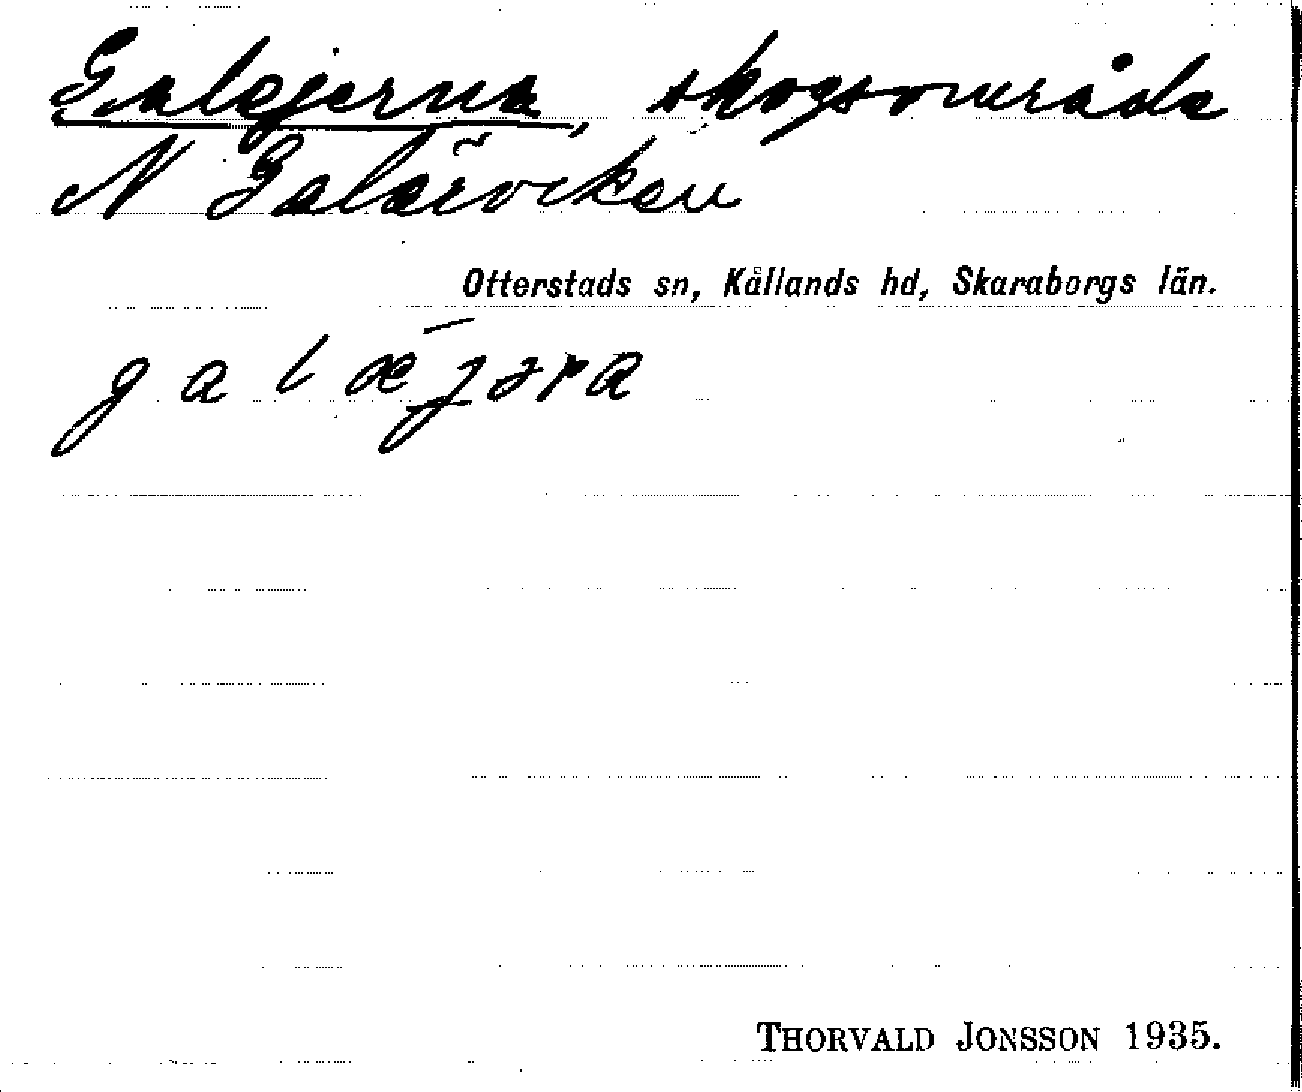 Galejerna, skogsområde
N Galärviken
Otterstads sn, Kållands hd, Skaraborgs län.
galæjəra
THORVALD JONSSON 1935.